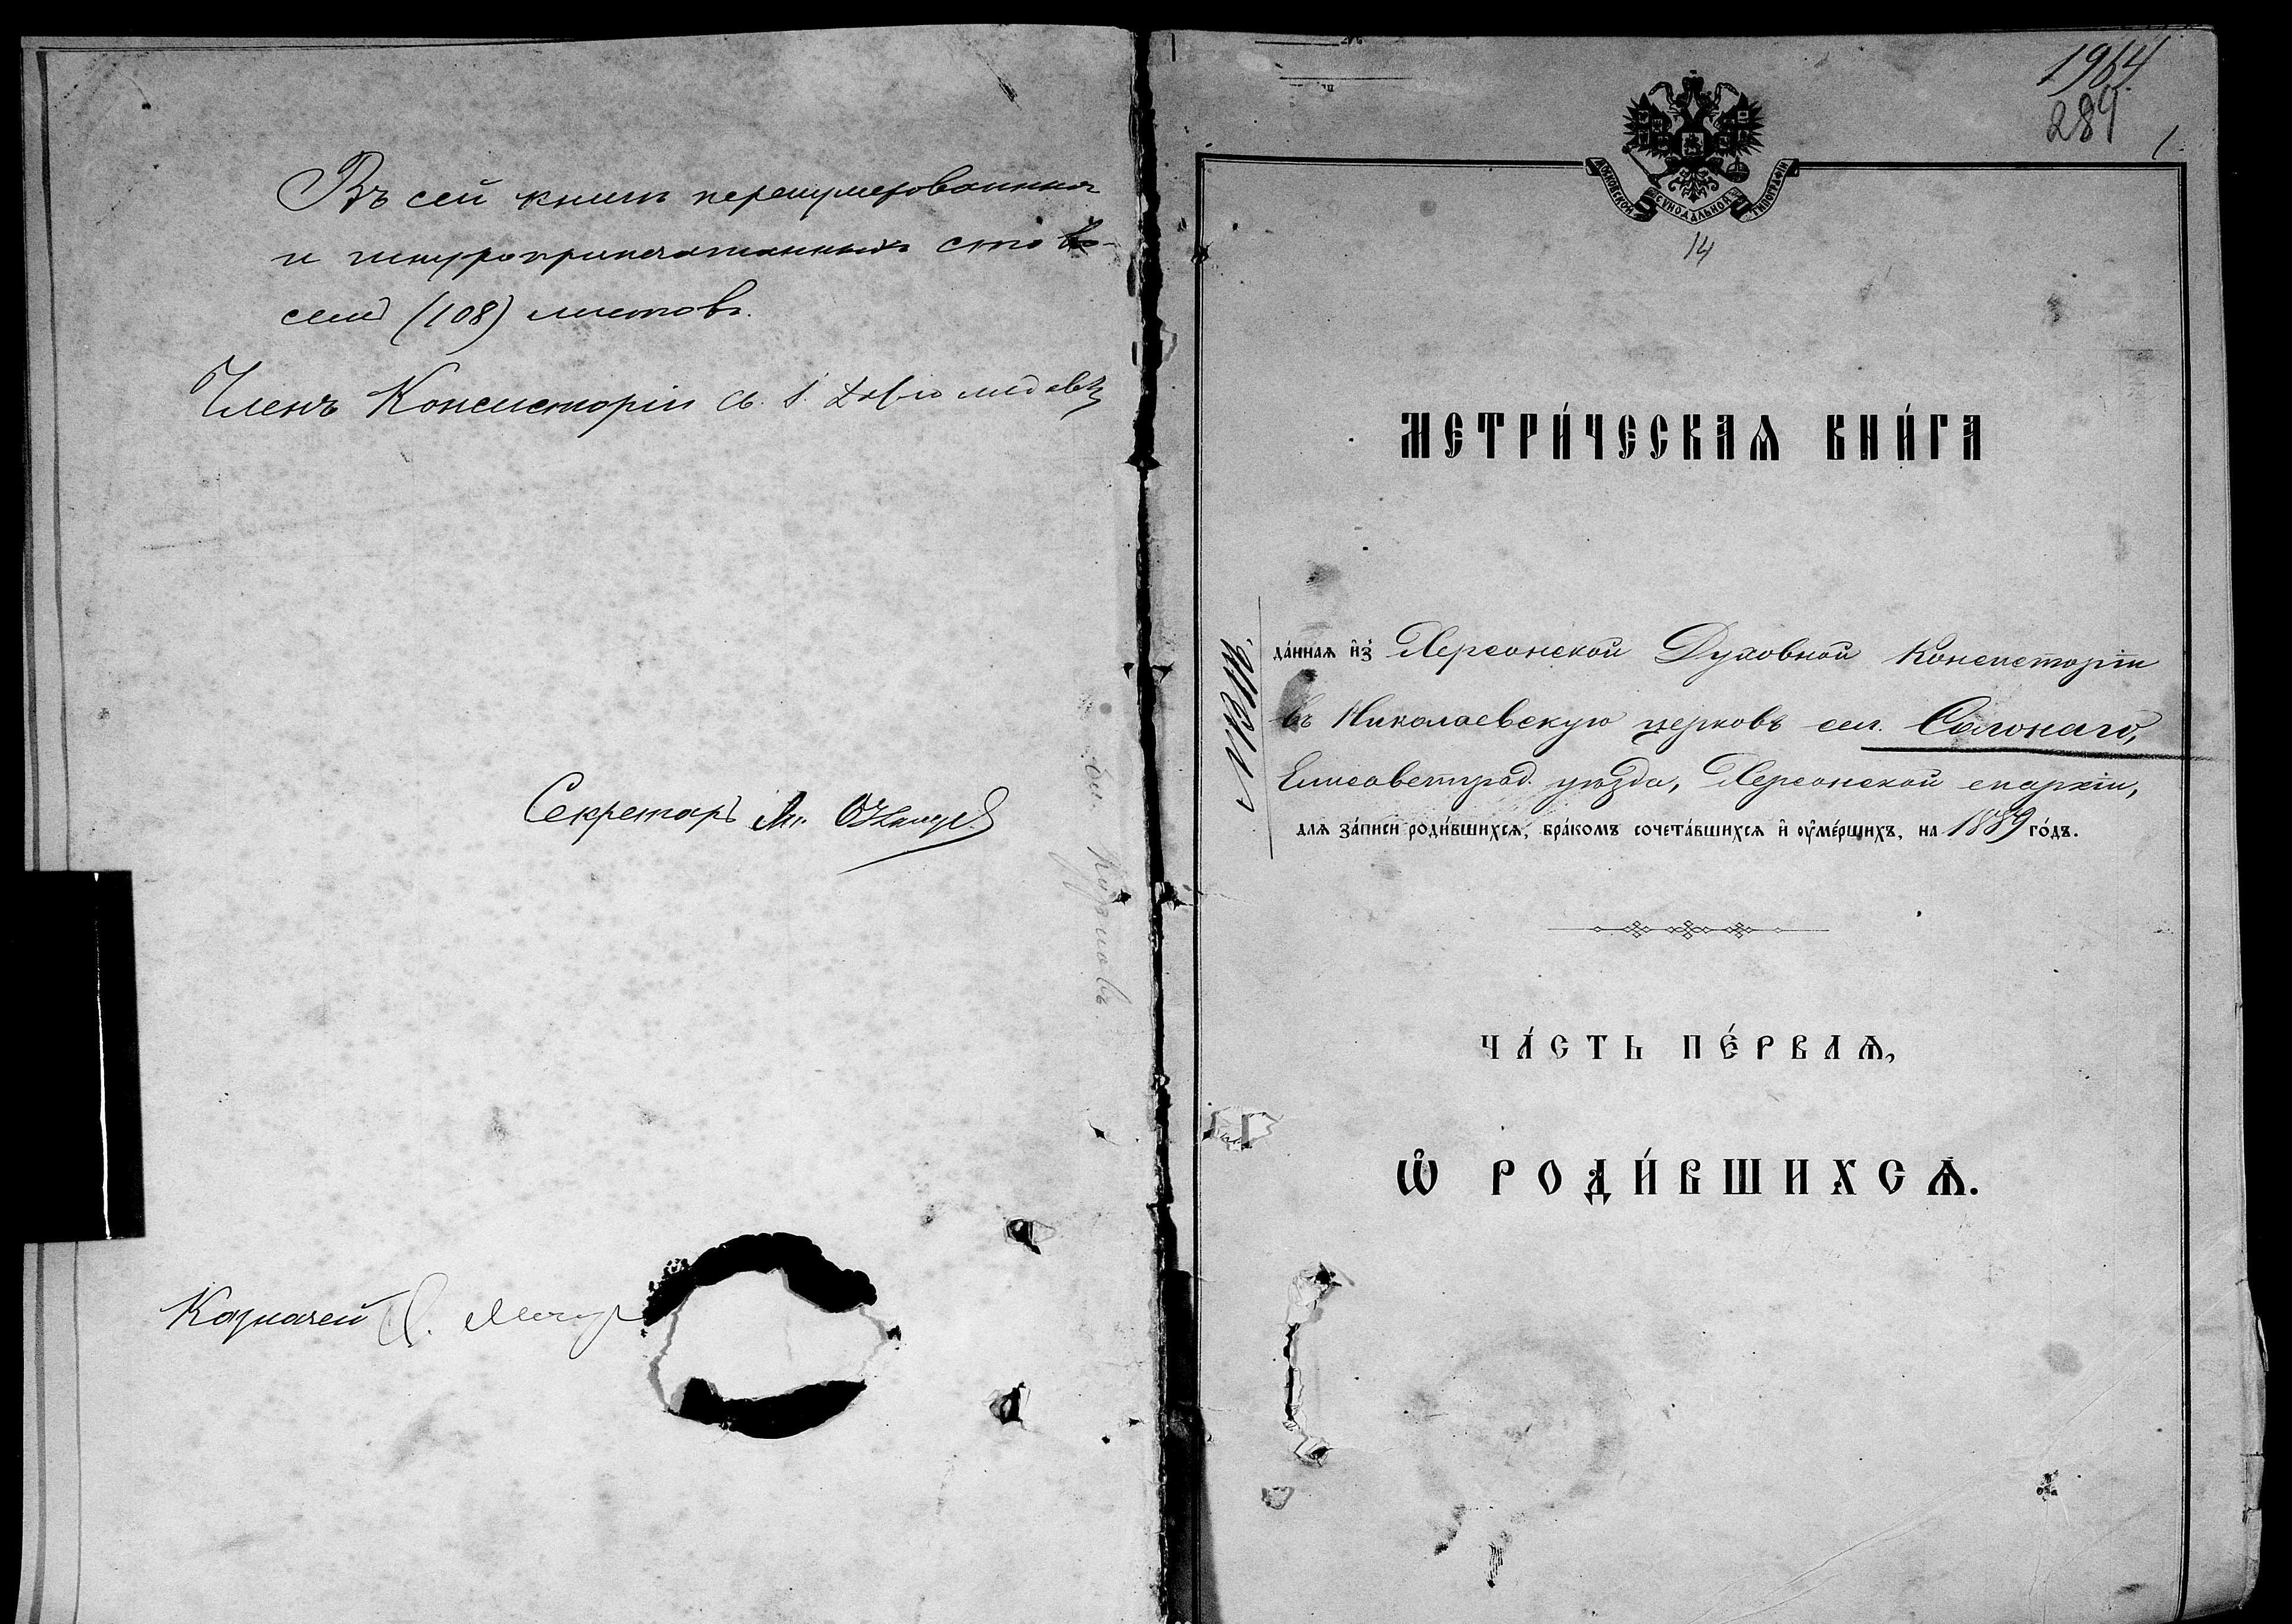 Въ сей книгѣ перенумерованныхъ
и шнуроприпечатанныхъ сто во-
семь (108) листовъ.
Членъ Консисторіи Св. І.
Секретарь
Казначей
1964
289
1
МОСКОВСКОЙ СѴНОДАЛЬНОЙ ТИПОГРАФІИ
14
МЕТРИ́ЧЕСКАѦ КНИ́ГА
да́ннаѧ и҆з̾ Херсонской Духовной Консисторіи
въ Николаевскую церковь сел. Солонаго,
Елисаветград. уѣзда, Херсонской епархіи,
длѧ за́писи роди́вшихсѧ, бра́комъ сочета́вшихсѧ и҆ ᲂу҆ме́ршихъ, на 1889 го́дъ.
ЧА́СТЬ ПЕ́РВАѦ,
Ѡ҆ РОДИ́ВШИХСѦ.